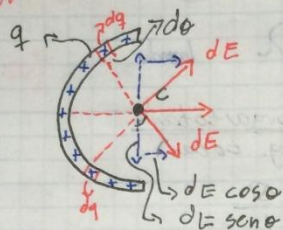 q
dq
dθ
dE
C
dE
dq
dE cosθ
dE senθ